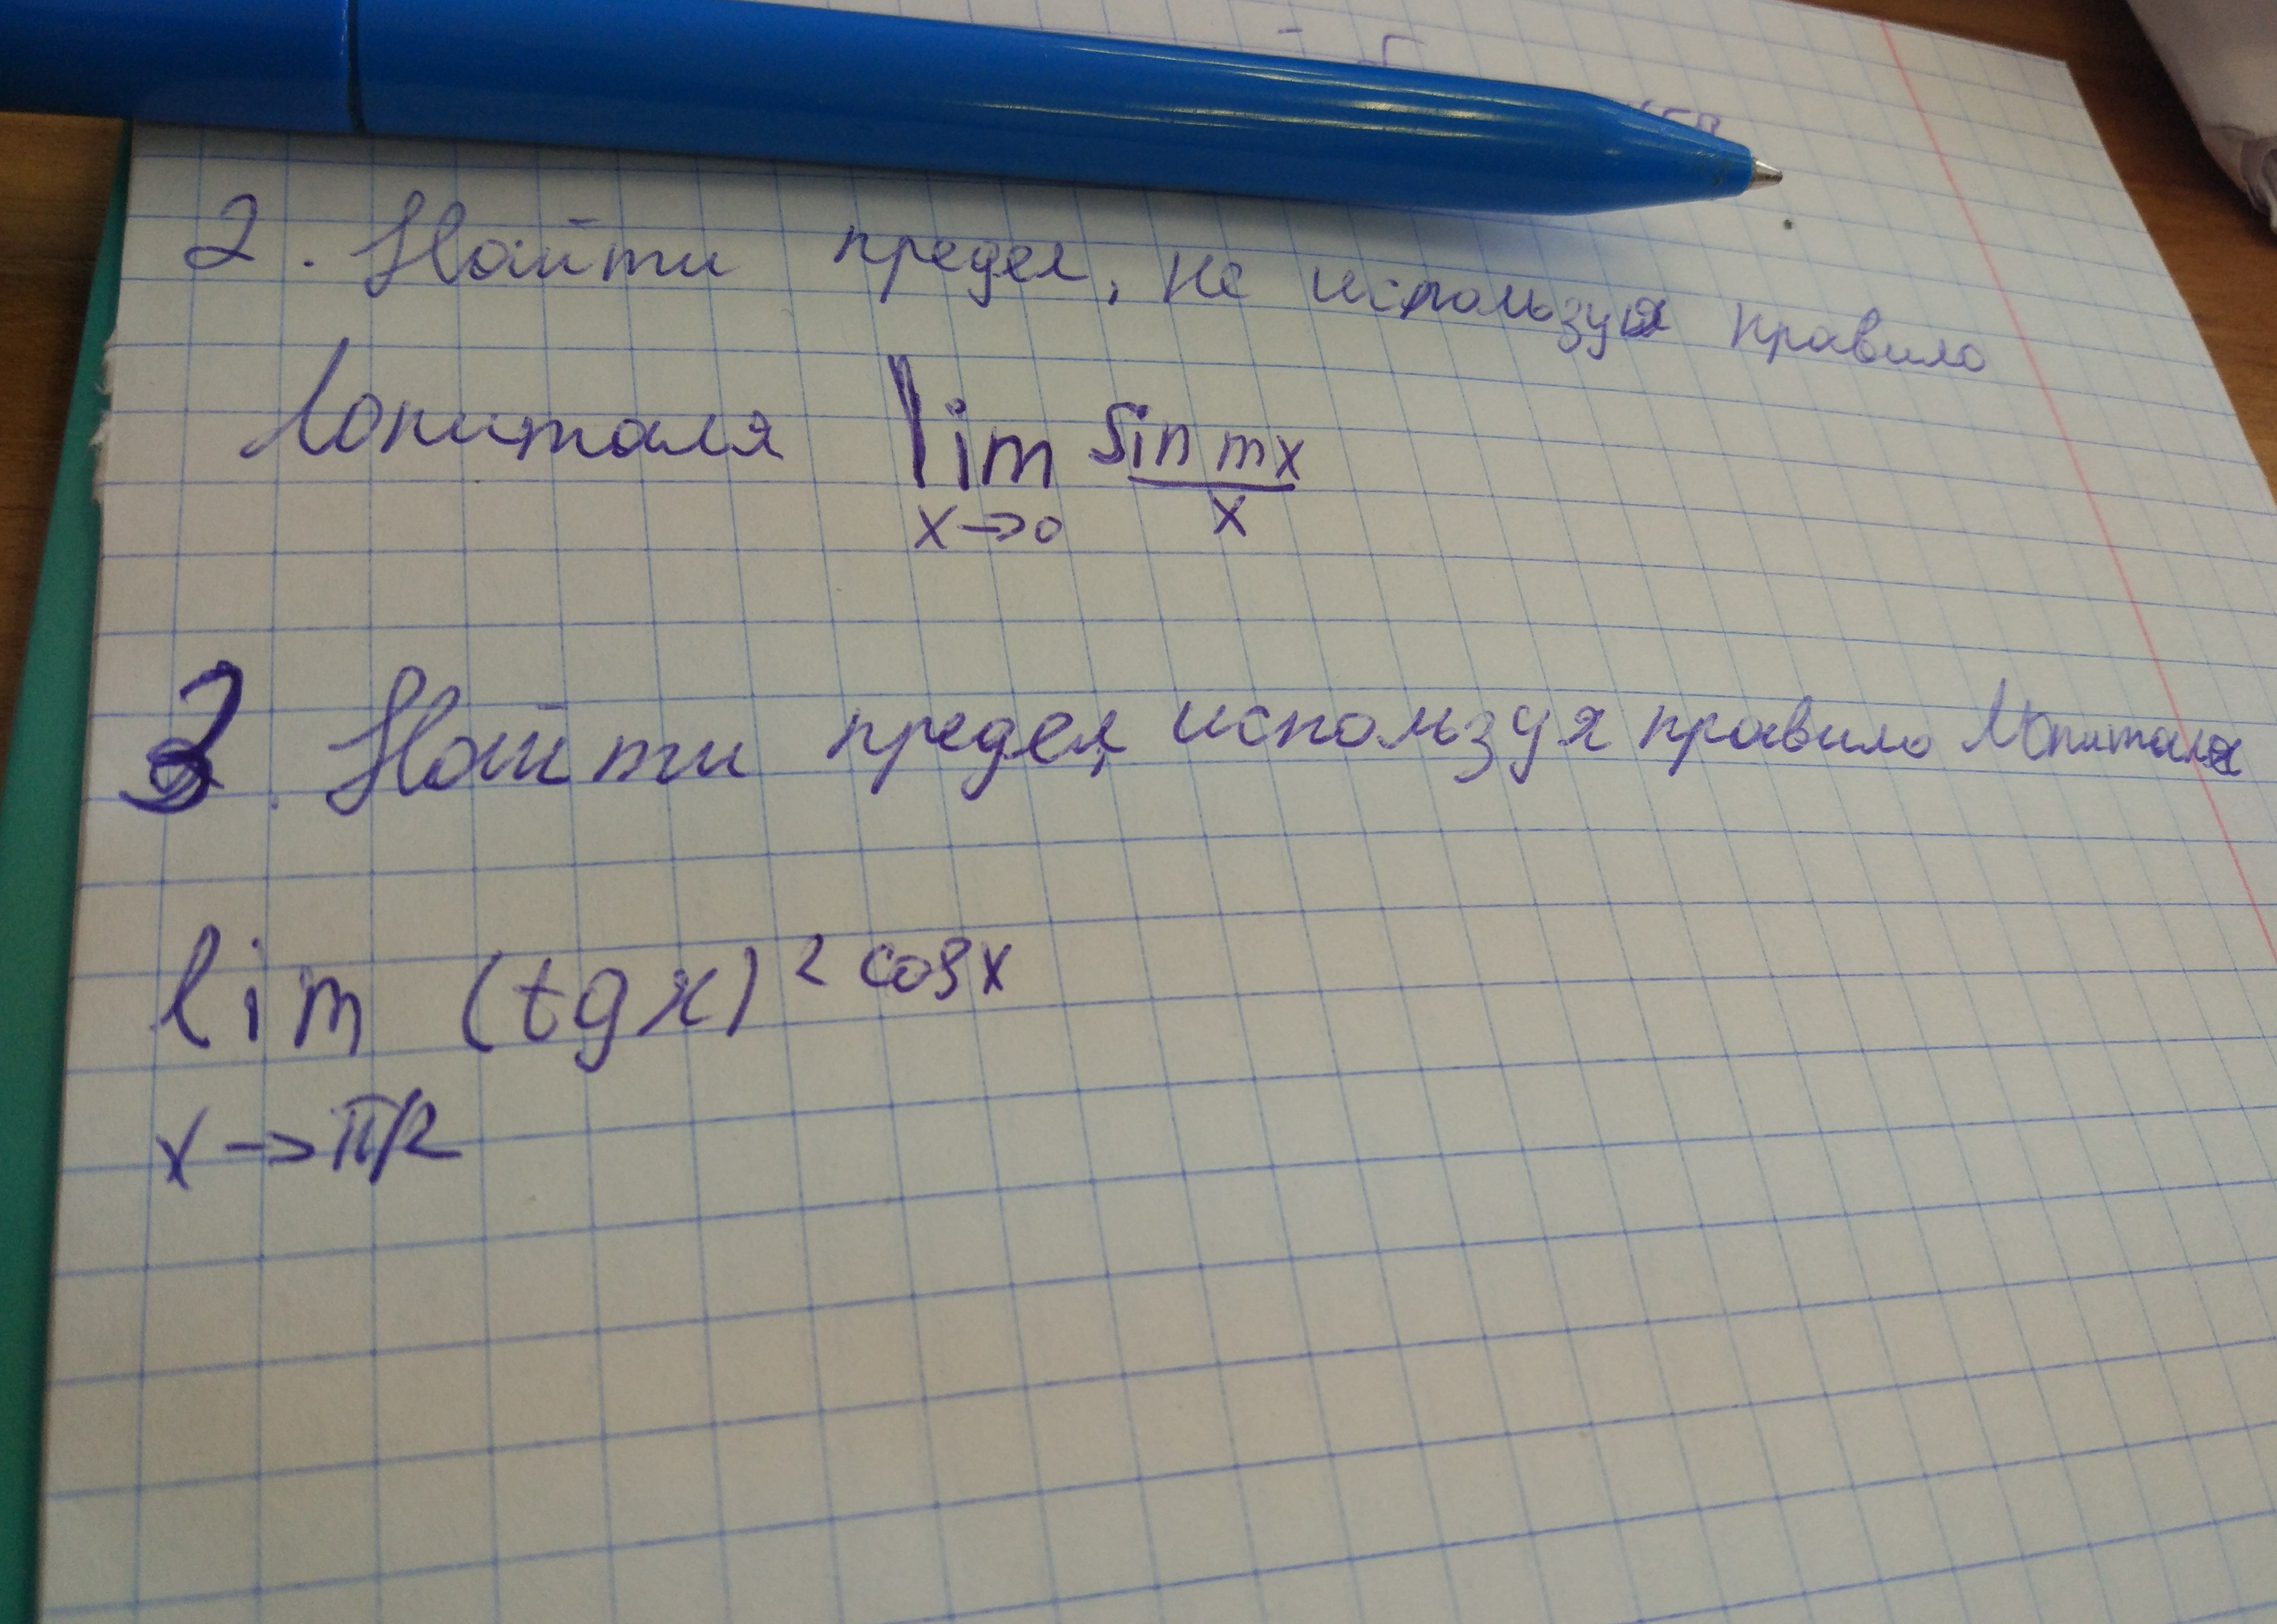 2. Найти предел, не используя правило
Лопиталя lim sin mx
x→0 x
3. Найти предел, используя правило Лопиталя
lim (tg x)² cos x
x→π/2